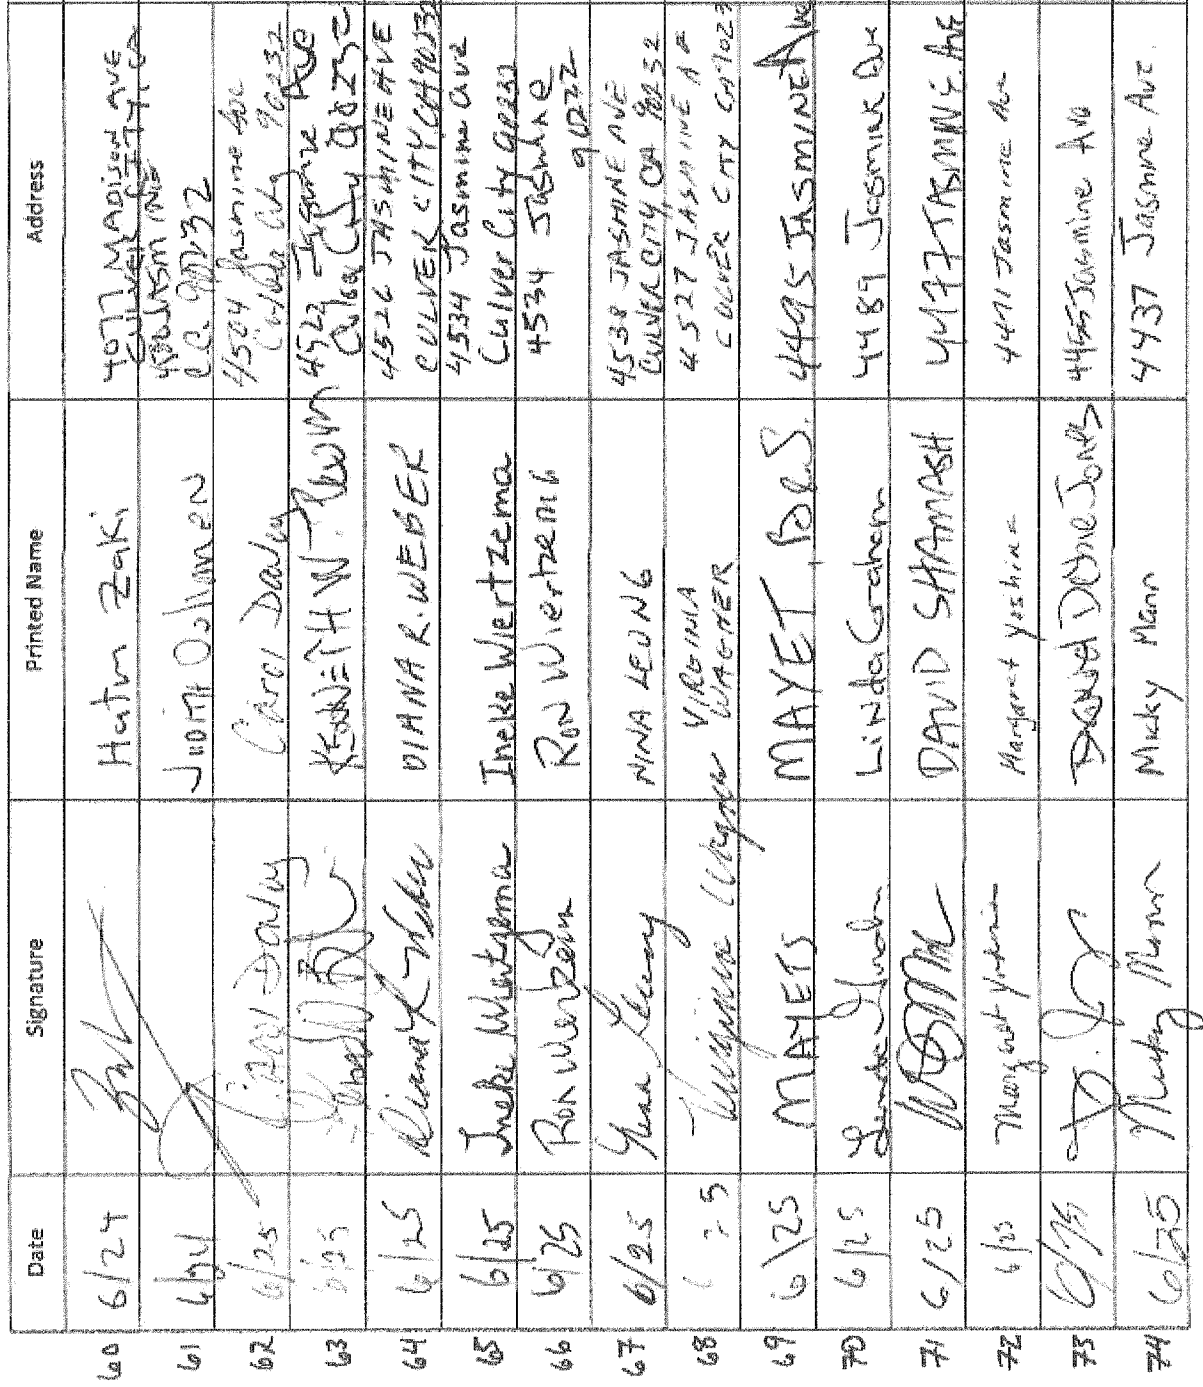 Date Signature Printed Name Address
60 6/24 Hatm Zaki 4077 MADISON AVE
CULVER CITY CA
61 6/24 JUDITH 
C.C. 90232
62 6/25 Carol Daley Carol Daley 4504 Jasmine Ave
Culver City 90232
63 6/25 KENNETH W. Jasmine Ave
Culver City 90232
64 6/25 Diana R Weber DIANA R. WEBER 4526 JASMINE AVE
CULVER CITY CA 90232
65 6/25 Ineke Wiertzema Ineke Wiertzema 4534 Jasmine Ave
Culver City 90232
66 6/25 Ron Wiertzema RON Wiertzema 4534 Jasmine
90232
67 6/25 Nina Leung NINA LEUNG 4538 JASMINE AVE
CULVER CITY CA 90232
68 Virginia Wagner VIRGINIA WAGNER 4527 JASMINE
CULVER CITY CA 9023
69 6/25 MAYETS MAYET, BDRS. 4495 JASMINE Ave
70 6/25 Linda Graham Linda Graham 4489 Jasmine Ave
71 6/25 DAVID SHAMASH 4477 JASMINE AVE
72 6/25 Margaret Yoshina Margaret Yoshina 4471 Jasmine Ave
73 6/25 Jones 4455 Jasmine Ave
74 6/25 Micky Mann Micky Mann 4437 Jasmine Ave.